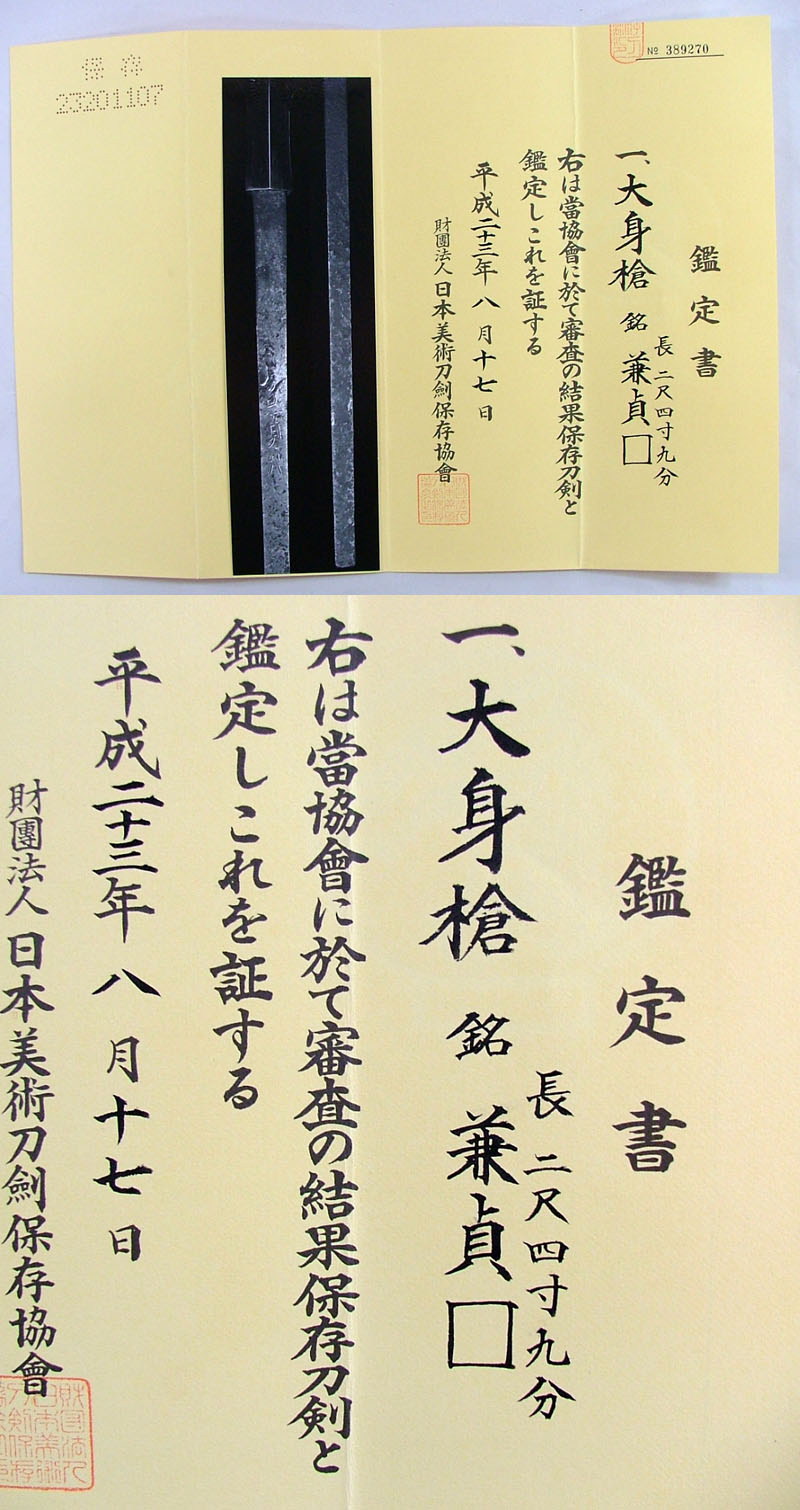 № 389270
鑑定書
長 二尺四寸九分
一、大身槍 銘 兼貞□
右は當協會に於て審査の結果保存刀剣と
鑑定しこれを証する
平成二十三年八月十七日
財團法人日本美術刀劍保存協會
保存
23201107
鑑定書
長 二尺四寸九分
一、大身槍 銘 兼貞□
右は當協會に於て審査の結果保存刀剣と
鑑定しこれを証する
平成二十三年八月十七日
財團法人日本美術刀劍保存協會